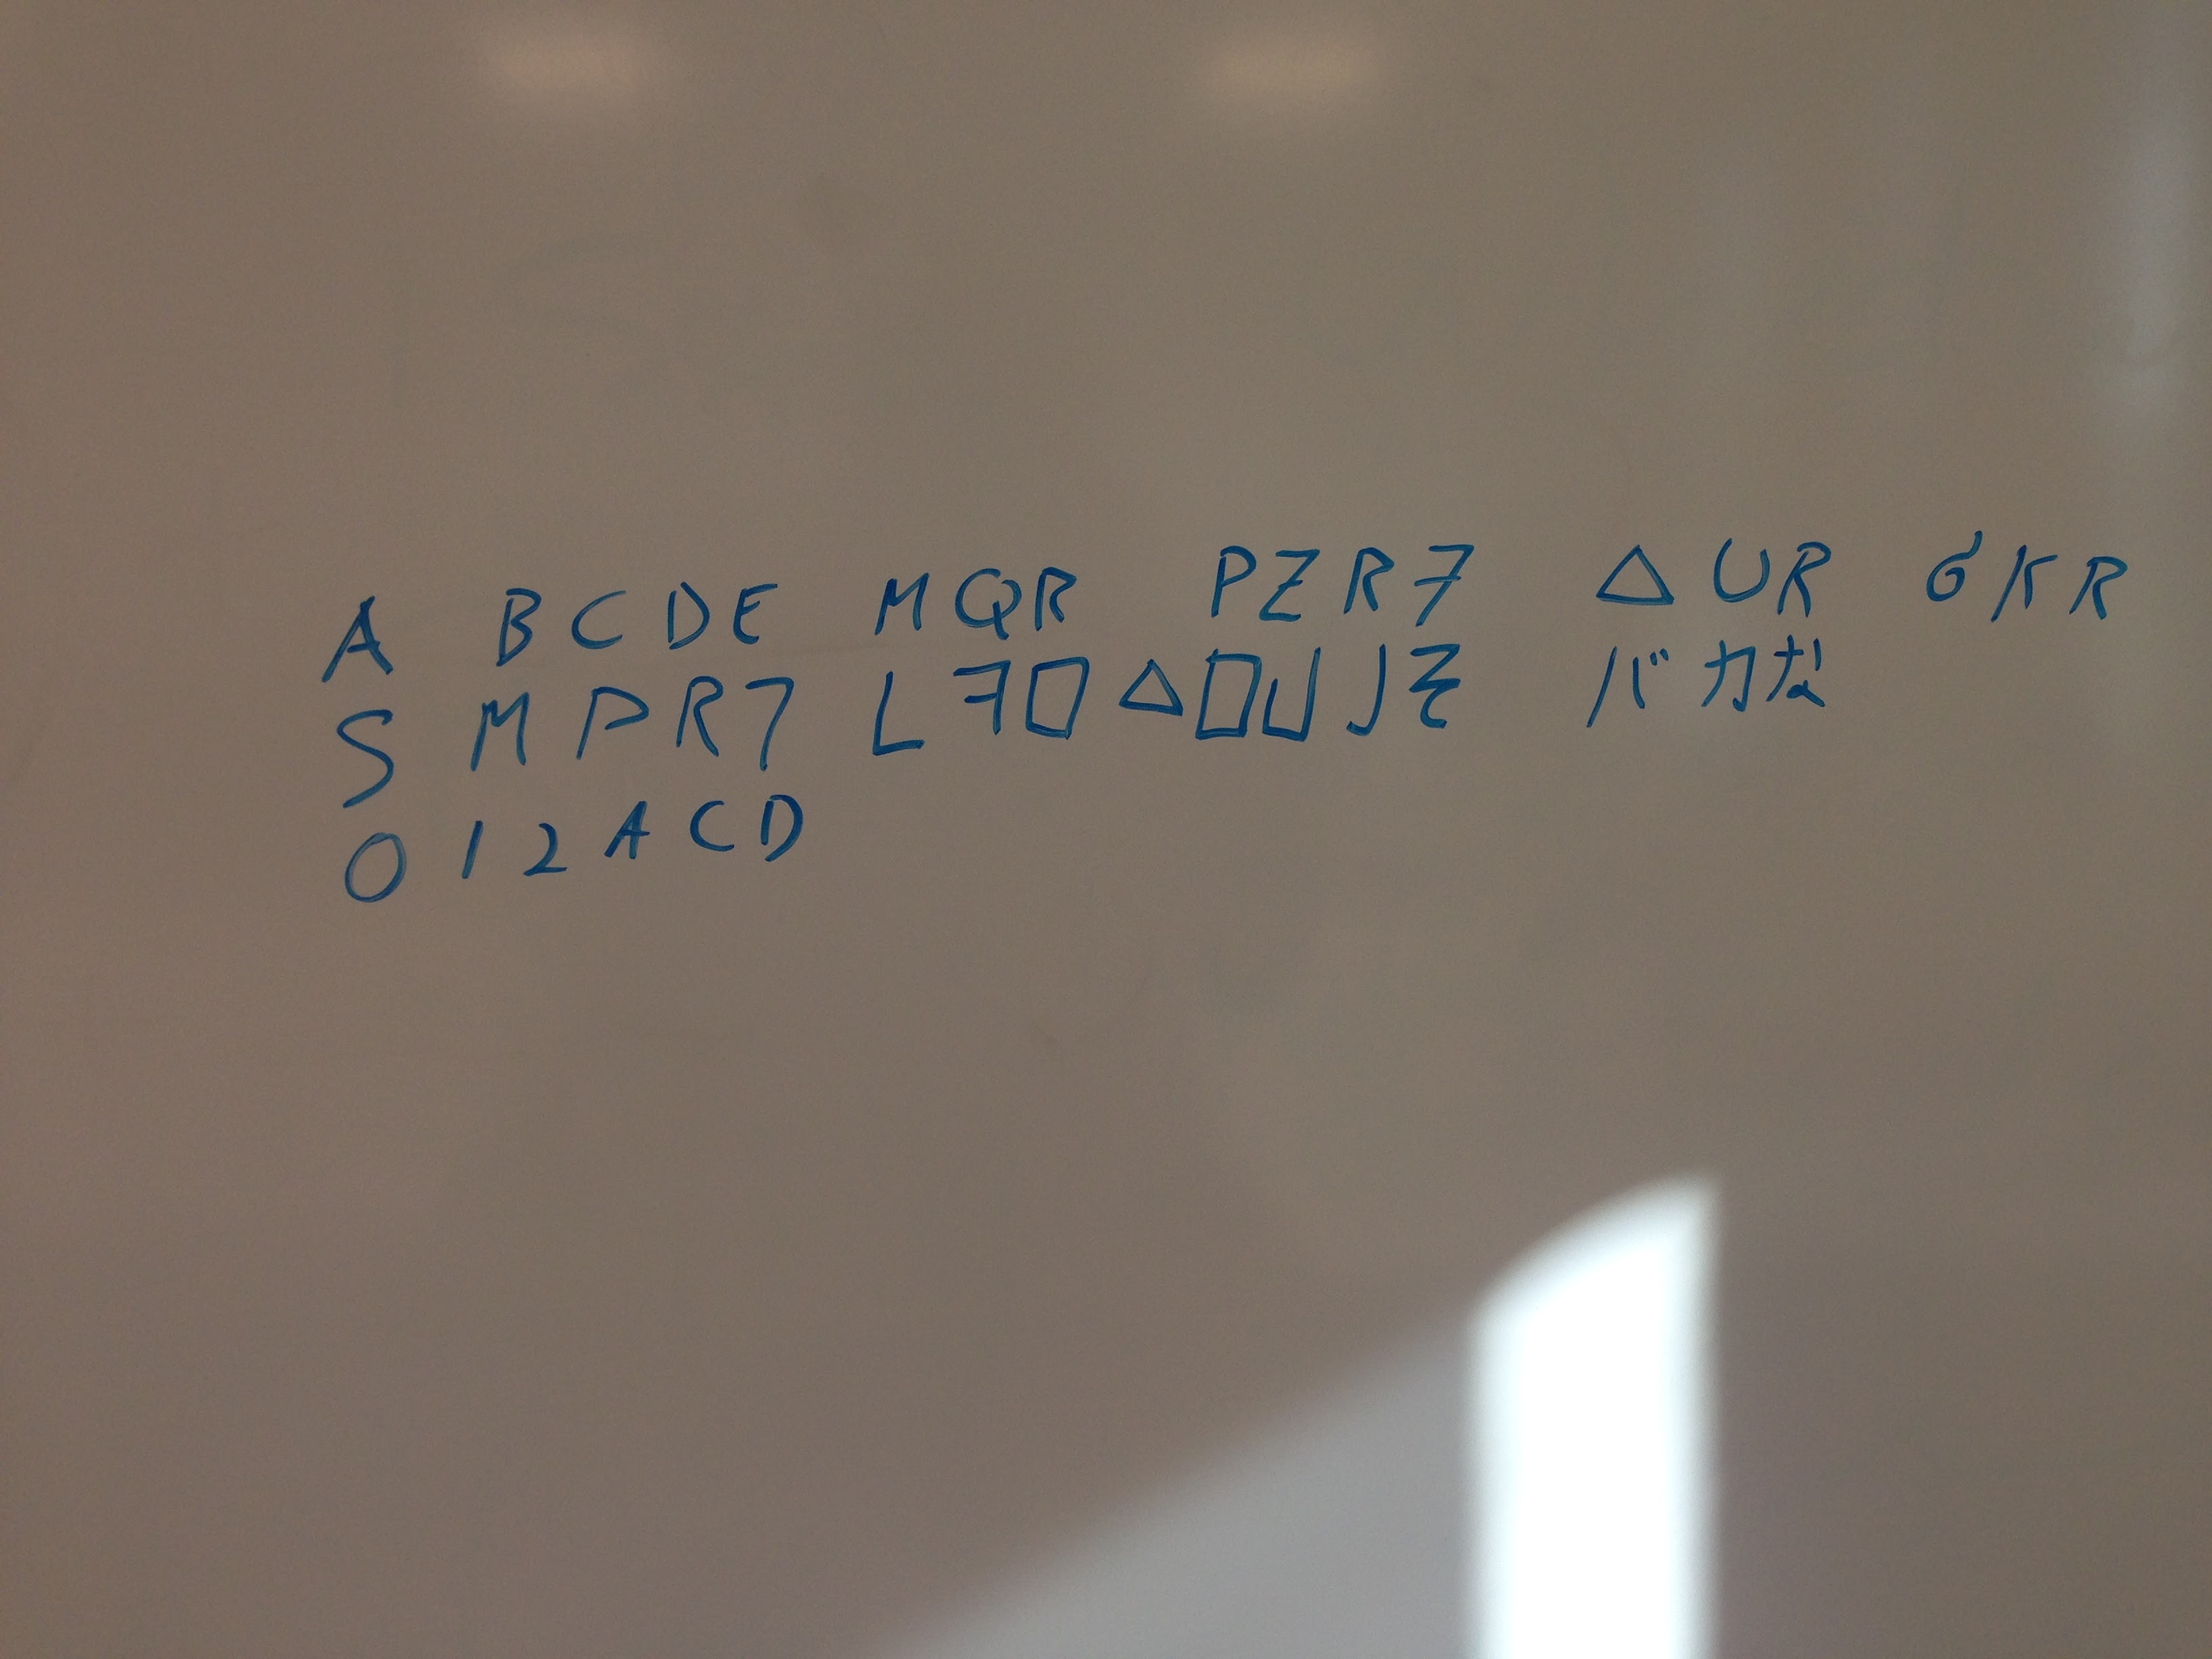 A BCDE MQR PZR7 △UR σKR
S MPR7 Lヨ□△□凵Jそ バカな
O12ACD